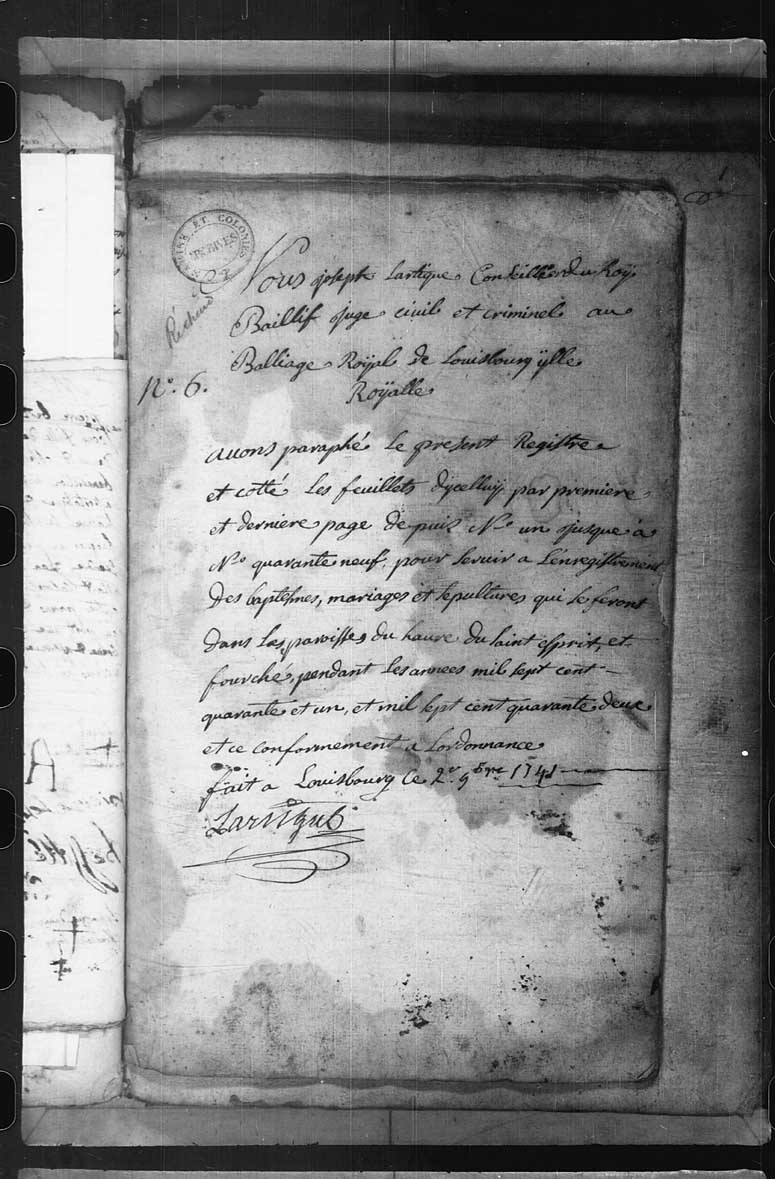 ARCHIVES
ET COLONIES
Nous joseph Lartigue Conseillier du Roÿ
Baillif juge civil et criminel au
Balliage Roÿal de Louisbourg ÿlle
Roÿalle
N.º 6.
auons paraphé Le present Registre
et cotté Les feuillets dycelluÿ par premiere
et derniere page de puis N.º un jusque a
N.º quarante neuf, pour seruir a L'enregistrement
des baptesmes, mariages et sepultures qui se feront
dans Les paroisses du haure du saint esprit, et
fourché, pendant Les années mil sept cent
quarante et un, et mil sept cent quarante deux
et ce conformement a Lordonnance
fait a Louisbourg Ce 2.e 9bre 1741
Lartigue